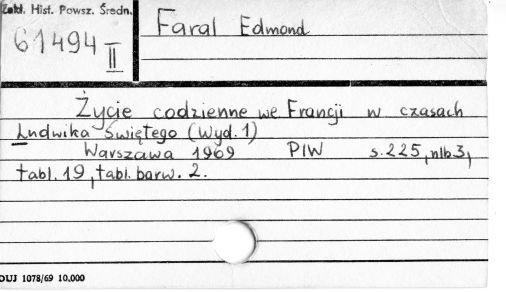 Zakł. Hist. Powsz. Średn.
61494
II
Faral Edmond
Życie codzienne we Francji w czasach
Ludwika Świętego (Wyd. 1)
Warszawa 1969 PIW s. 225, nlb 3,
tabl. 19, tabl. barw. 2.
DUJ 1078/69 10.000